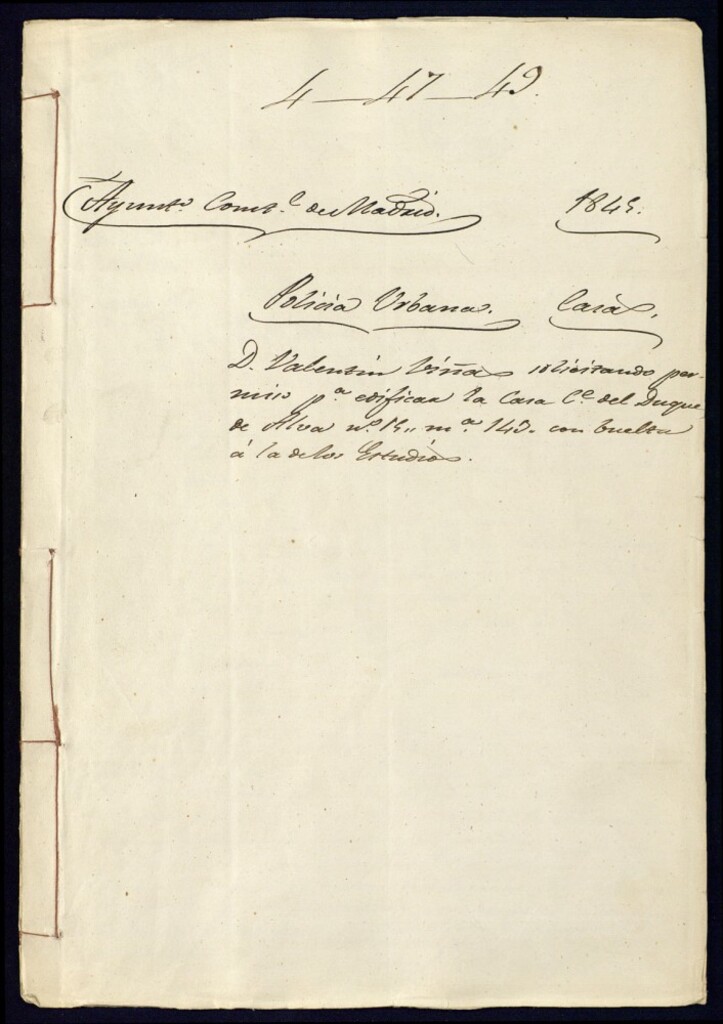 4-47-49.
Ayuntº Constl de Madrid. 1845.
Policia Urbana. Casas.
D. Valentin Viñas solicitando per-
miso pª edificar la Casa Ce del Duque
de Alva nº 15,, mª 143. con buelta
á la de los Estudios.